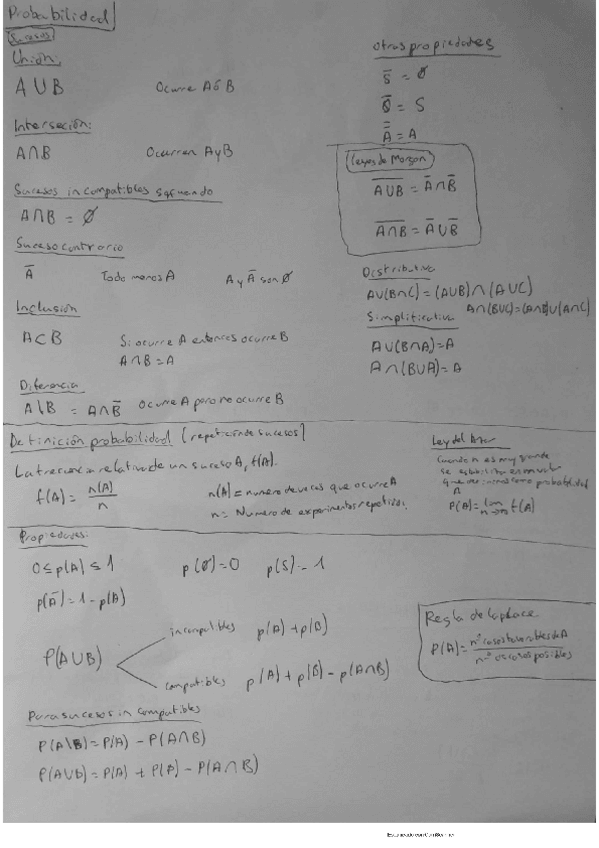 Probabilidad
Sucesos
Unión:
A ∪ B Ocurre A ó B
Interseción:
A ∩ B Ocurren A y B
Sucesos incompatibles
A ∩ B = ∅
Suceso contrario
A̅ Todo menos A A y A̅ son ∅
Inclusión
A ⊂ B Si ocurre A entonces ocurre B
A ∩ B = A
Diferencia
A \ B = A ∩ B̅ Ocurre A pero no ocurre B
Otras propiedades
S̅ = ∅
∅̅ = S
A̿ = A
Leyes de Morgan
A̅∪̅B̅ = A̅ ∩ B̅
A̅∩̅B̅ = A̅ ∪ B̅
Distributiva
A∪(B∩C) = (A∪B)∩(A∪C)
A∩(B∪C)=(A∩B)∪(A∩C)
Simplificativa
A∪(B∩A)=A
A∩(B∪A)=A
Definición probabilidad (repetición de sucesos)
La frecuencia relativa de un suceso A, f(A).
f(A) = n(A)/n
n(A) = numero de veces que ocurre A
n = Numero de experimentos repetidos.
Ley del Azar
Cuando n es muy grande
se estabiliza en un valor
que como probabilidad
A
P(A) = lim n→∞ f(A)
Propiedades:
0 ≤ p(A) ≤ 1 p(∅)=0 p(S)=1
p(A̅) = 1 - p(A)
P(A∪B)
incompatibles p(A) + p(B)
compatibles p(A) + p(B) - p(A∩B)
Regla de Laplace
P(A) = nº casos favorables de A / nº casos posibles
Para sucesos incompatibles
P(A\B) = P(A) - P(A∩B)
P(A∪b) = P(A) + P(B) - P(A∩B)
Escaneado con CamScanner